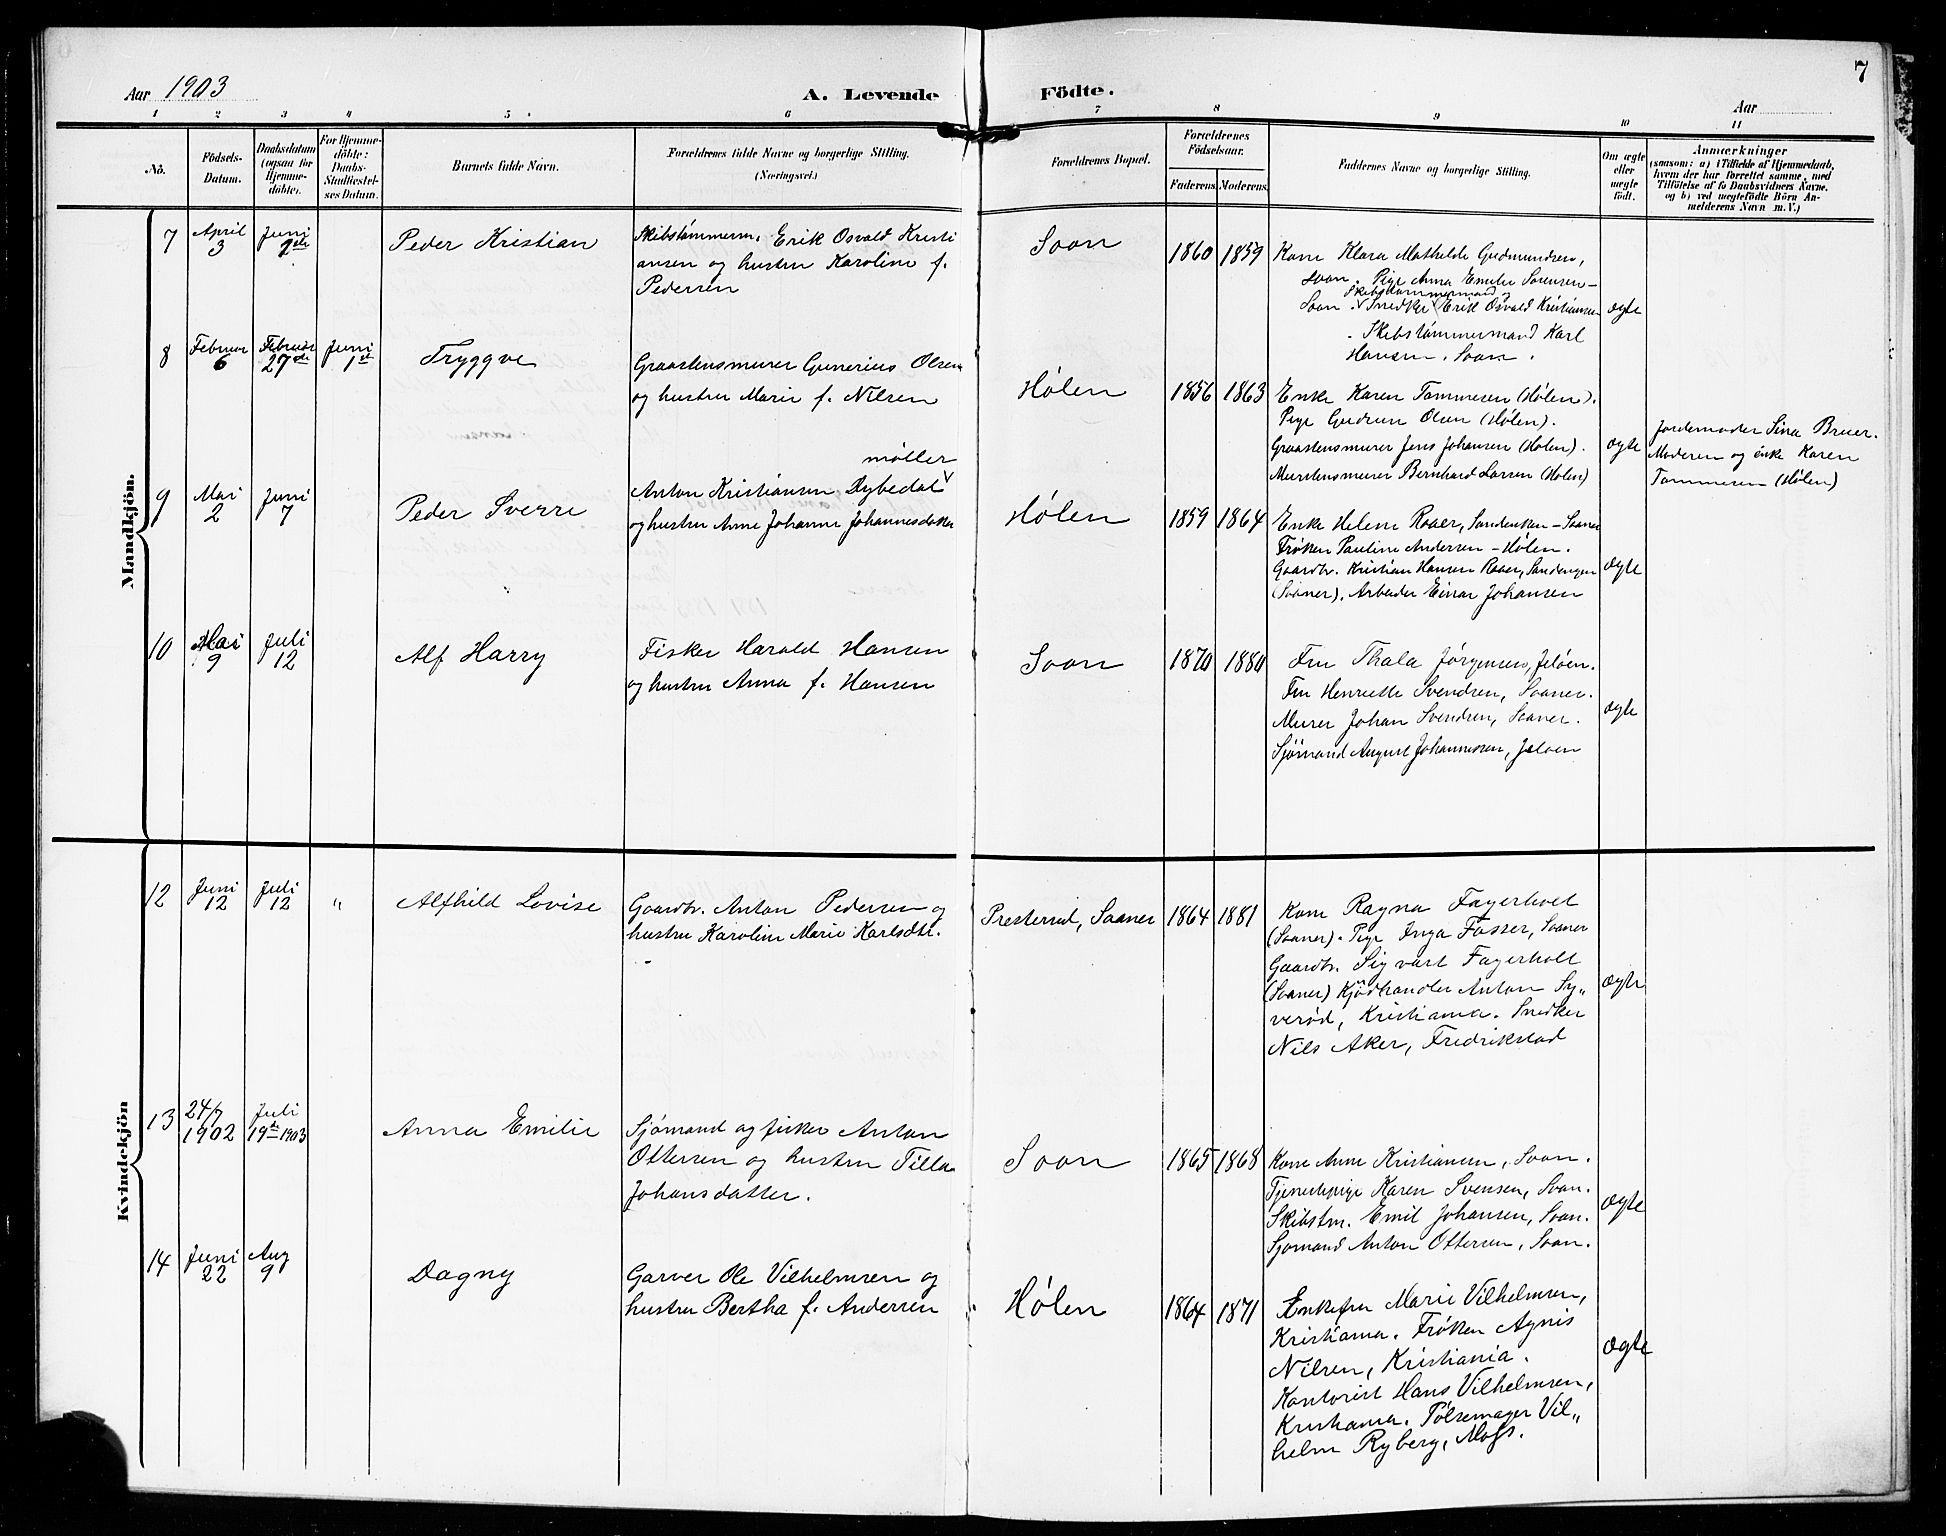 7
Aar 1903
A. Levende Födte.
Aar
1 2 3 4 5 6 7 8 9 10 11
No.
Födsels-
Datum.
Daabsdatum
(ogsaa for
Hjemme-
döbte).
For Hjemme-
döbte:
Daabs-
Stadfæstel-
ses Datum.
Barnets fulde Navn.
Forældrenes fulde Navne og borgerlige Stilling.
(Næringsvei.)
Forældrenes Bopæl.
Forældrenes
Födselsaar.
Faderens. Moderens.
Faddernes Navne og borgerlige Stilling.
Om ægte
eller
uægte
födt.
Anmærkninger
(saasom: a) i Tilfælde af Hjemmedaab,
hvem der har forrettet samme, med
Tilföielse af to Daabsvidners Navne.
og b) ved uægtefödte Börn An-
melderens Navn m. V.)
Mandkjön.
7
April
3
Juni
Peder Kristian
Skibstömmerm. Erik Osvald Kristi
ansen og hustru Karoline f.
Pedersen
Soon
1860 1859
Kone Klara Mathilde Gudmundsen,
Soon. Pige Anna Emilie Sörensen –
Skibstömmermand
Soon. Snedker Erik Osvald Kristiansen
. Skibstömmermand Karl
Hansen. Soon.
ægte
8
Februar
6
Februar
27de
Juni
1st
Tryggve
Graastensmurer Gunerius Olsen
og hustru Marie f. Nilsen
Hølen
1856 1863
Enke Karen Tommesen (Hølen).
Pige Gudrun Olsen (Hølen).
Graastensmurer Jens Johansen (Hølen).
Murstensmurer Bernhard Larsen (Hølen)
ægte
Jordemoder Sina Bruer.
Moderen og enke Karen
Tommesen (Hølen)
9
Mai
2
Juni
7
Peder Sverre
møller
Anton Kristiansen Dybedal
og hustru Anne Johanne Johannesdatter
Hølen
1859 1864
Enke Helene Roaer, Sandenken – Soaner
Frøken Pauline Andersen – Hølen.
Gaardbr. Kristian Hansen Roaer, Sandengen
(Soaner). Arbeider Einar Johansen
ægte
10
Mai
9
Juli
12
Alf Harry
Fisker Harald Hansen
og hustru Anna f. Hansen
Soon
1870 1880
Fru Thala Jørgensen, Jeløen.
Fru Henriette Svendsen, Soaner.
Murer Johan Svendsen, Soaner.
Sjömand August Johannessen, Jeløen
ægte
Kvindekjön
12
Juni
12
Juli
12
"
Alfhild Lovise
Gaardbr. Anton Pedersen og
hustru Karoline Marie Karlsdtr.
Presterud, Soaner
1864 1881
Kone Ragna Fagerholt
(Soaner). Pige Inga Fosser, Soaner
Gaardbr. Sigvart Fagerholt
(Soaner) Kjödhandler Anton Sy„
verød, Kristiania. Snedker
Nils Aker, Fredrikstad
ægte
13
24/7
1902
Juli
19de 1903
Anna Emilie
Sjömand og fisker Anton
Ottersen og hustru Tilla
Johansdatter.
Soon
1865 1868
Kone Anne Kristiansen, Soon.
Tjenestepige Karen Svensen, Soon.
Skibstm. Emil Johansen, Soon.
Sjomand Anton Ottersen, Soon.
ægte
14
Juni
22
Aug
9
Dagny
Garver Ole Vilhelmsen og
hustru Bertha f. Andersen
Hølen
1864 1871
Enkefru Marie Vilhelmsen,
Kristiania. Frøken Agnis
Nilsen, Kristiania.
Kontorist Hans Vilhelmsen,
Kristiania. Pölsemager Vil„
helm Ryberg, Moss.
ægte